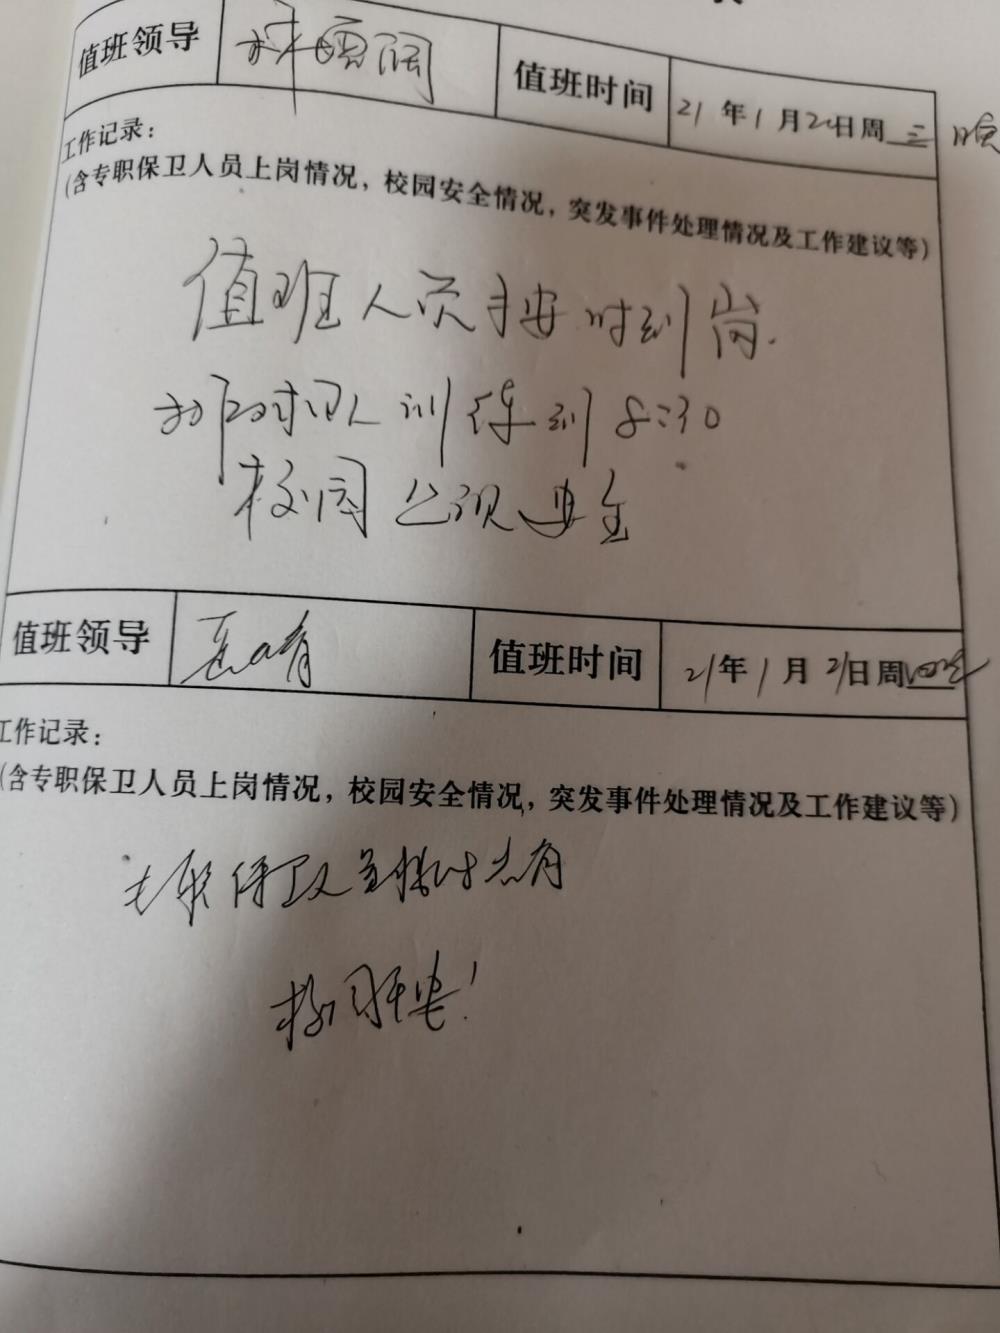 值班领导 值班时间 21年1月20日周三晚
工作记录：
(含专职保卫人员上岗情况，校园安全情况，突发事件处理情况及工作建议等)
值班人员按时到岗.
训练到8:30
校园 安全
值班领导 值班时间 21年1月21日周四
工作记录：
(含专职保卫人员上岗情况，校园安全情况，突发事件处理情况及工作建议等)
专职保卫人员按时
校园平安!